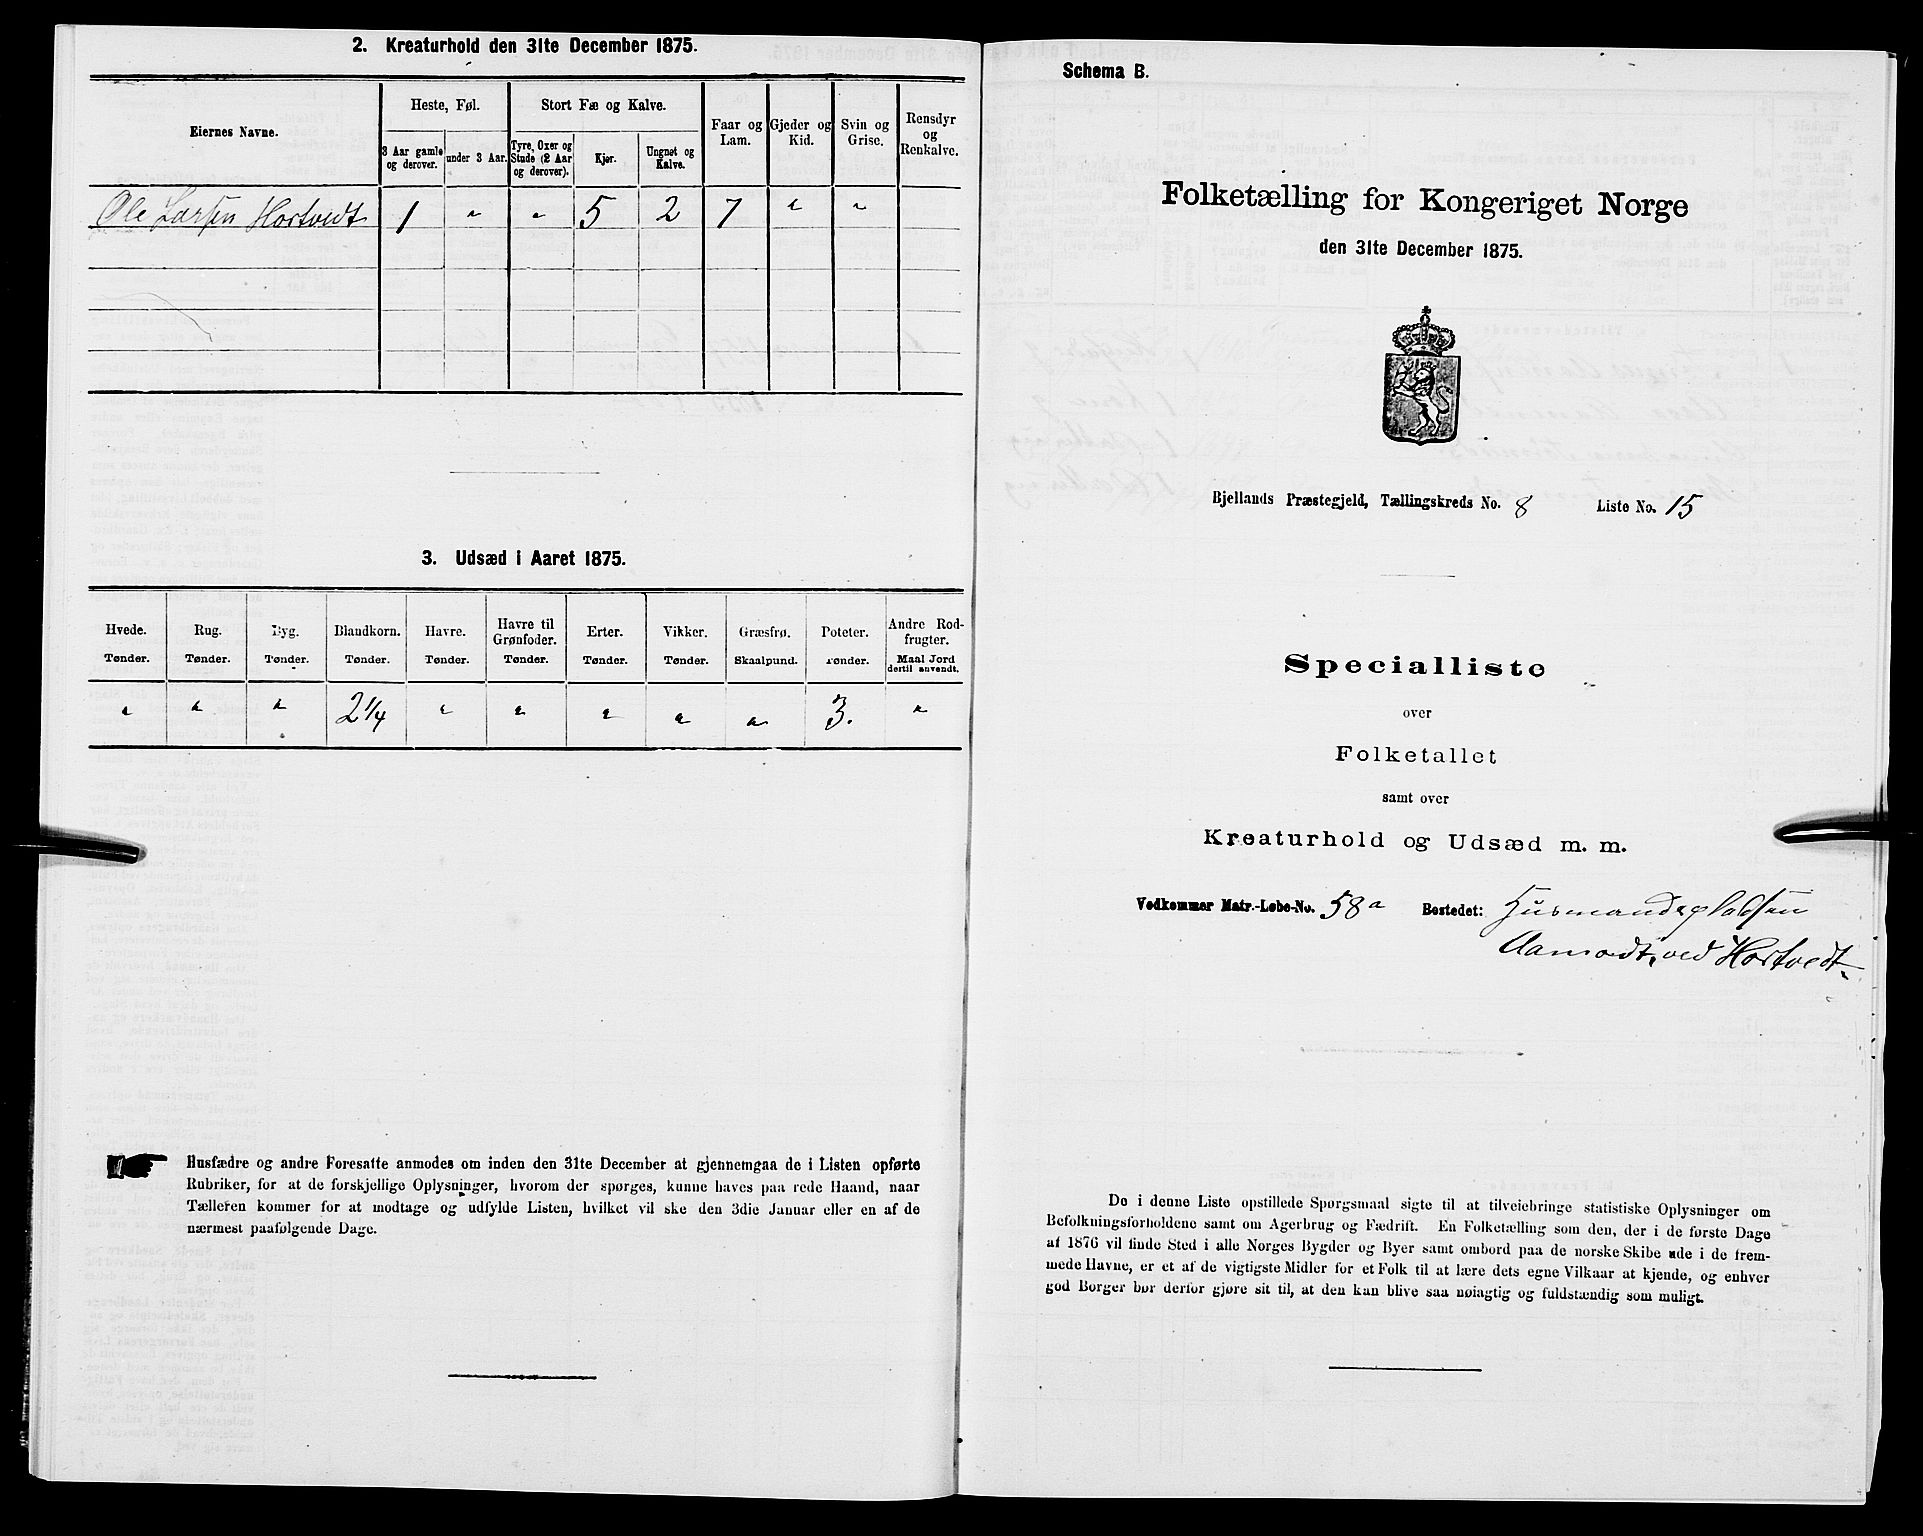 2. Kreaturhold den 31te December 1875.
Eiernes Navne.
Heste, Føl.
Stort Fæ og Kalve.
Faar og Lam.
Gjeder og Kid.
Svin og Grise.
Rensdyr og Renkalve.
3 Aar gamle og derover.
under 3 Aar.
Tyre, Oxer og Stude (2 Aar og derover).
Kjør.
Ungnøt og Kalve.
Ole Larsen Hortvedt 1 " " 5 2 7 " "
3. Udsæd i Aaret 1875.
Hvede. Rug. Byg. Blandkorn. Havre. Havre til Grønfoder. Erter. Vikker. Græsfrø. Poteter. Andre Rodfrugter.
Tønder. Tønder. Tønder. Tønder. Tønder. Tønder. Tønder. Tønder. Skaalpund. Tønder. Maal Jord dertil anvendt.
" " " 2 1/4 " " " " " 3. "
Husfædre og andre Foresatte anmodes om inden den 31te December at gjennemgaa de i Listen opførte
Rubriker, for at de forskjellige Oplysninger, hvorom der spørges, kunne haves paa rede Haand, naar
Tælleren kommer for at modtage og udfylde Listen, hvilket vil ske den 3die Januar eller en af de
nærmest paafølgende Dage.
Schema B.
Folketælling for Kongeriget Norge
den 31te December 1875.
Bjellands Præstegjeld, Tællingskreds No. 8 Liste No. 15
Specialliste
over
Folketallet
samt over
Kreaturhold og Udsæd m. m.
Vedkommer Matr.-Løbe-No. 58a Bostedet: Husmandspladsen
Aamodt, ved Hortvedt.
De i denne Liste opstillede Spørgsmaal sigte til at tilveiebringe statistiske Oplysninger om
Befolkningsforholdene samt om Agerbrug og Fædrift. En Folketælling som den, der i de første Dage
af 1876 vil finde Sted i alle Norges Bygder og Byer samt ombord paa de norske Skibe ude i de frem-
mede Havne, er et af de vigtigste Midler for et Folk til at lære dets egne Vilkaar at kjende, og enhver
god Borger bør derfor gjøre sit til, at den kan blive saa nøiagtig og fuldstændig som muligt.